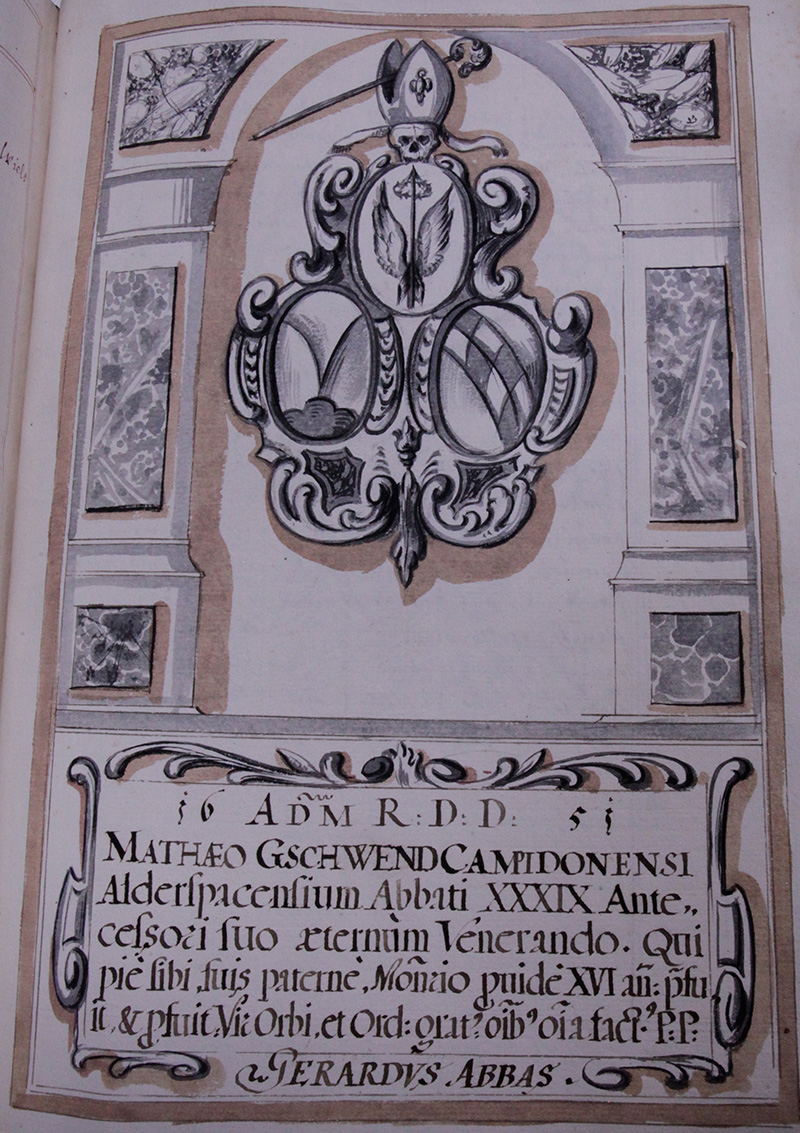 16 ADM R: D: D: 51
MATHÆO GSCHWEND CAMPIDONENSI
Alderspacensium Abbati XXXIX Ante„
cessori suo æternùm Venerando. Qui
piè sibi, suis paternè, Mon̄rio p̱uidè XVI añ: p̄fu
it, & p̱fuit. Vir Orbi, et Ord: grat⁹ oīb⁹ oīa fact⁹. P: P:
GERARDVS ABBAS.